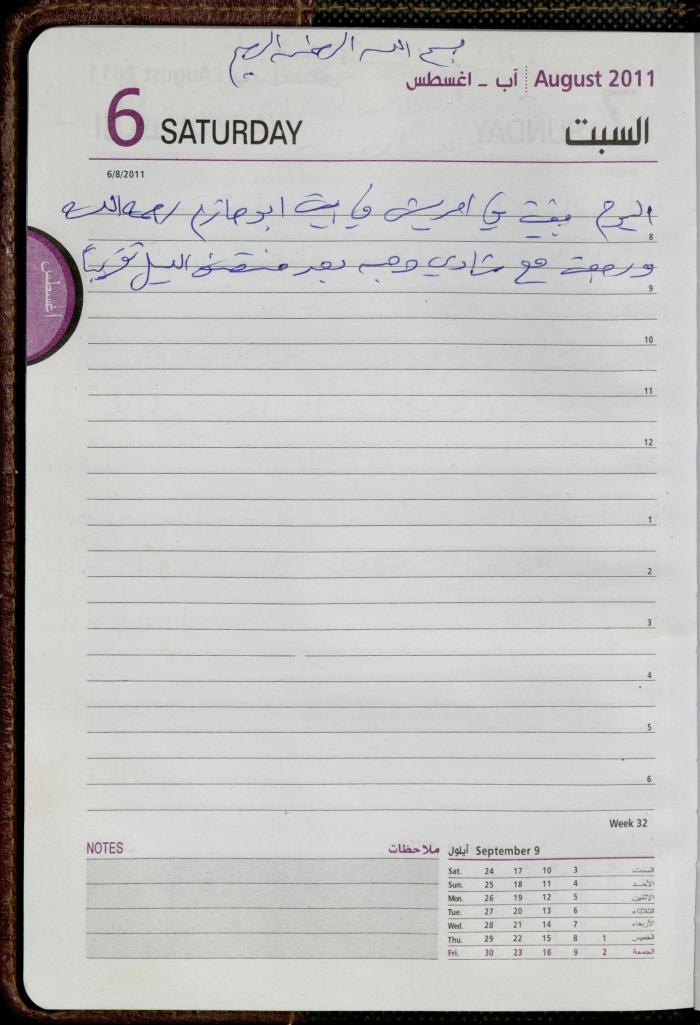 بسم الله الرحمن الرحيم
آب - اغسطس August 2011
6 SATURDAY السبت
6/8/2011
اليوم بقية في امريش في بيت ابو حازم رحمه الله
8
ورجعة مع شادي وجيه بعد منتصف اليل تقريباً
9
اغسطس
10
11
12
1
2
3
4
5
6
Week 32
NOTES ملاحظات
أيلول September 9
Sat. 24 17 10 3 السبت
Sun. 25 18 11 4 الأحد
Mon. 26 19 12 5 الإثنين
Tue. 27 20 13 6 الثلاثاء
Wed. 28 21 14 7 الأربعاء
Thu. 29 22 15 8 1 الخميس
Fri. 30 23 16 9 2 الجمعة